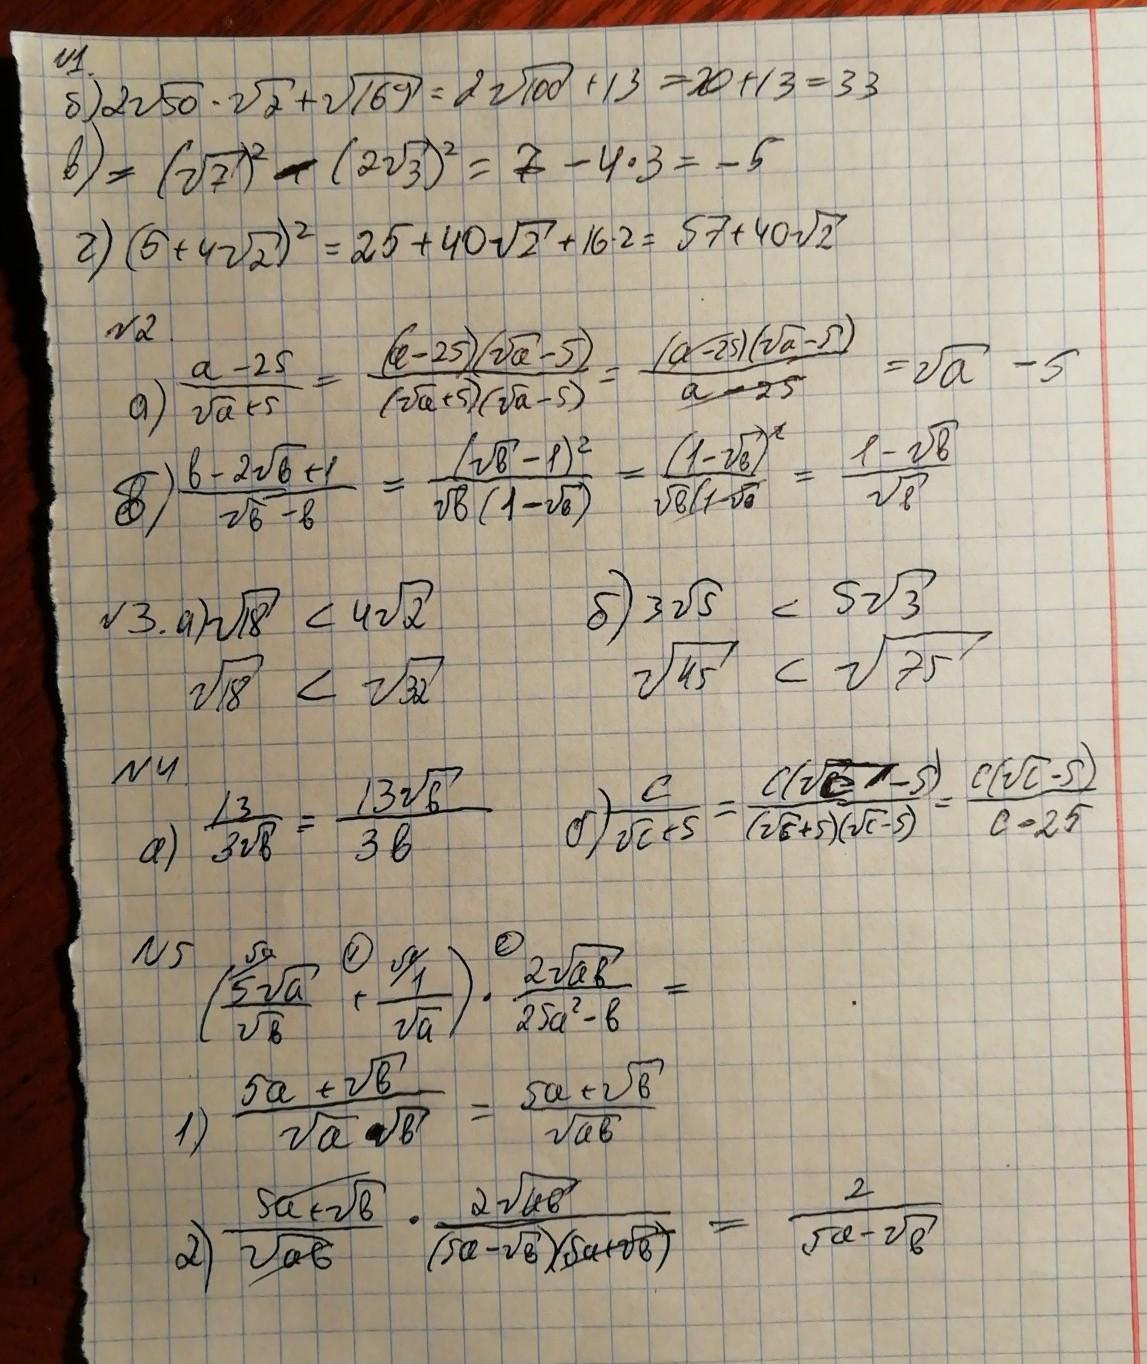 √1.
б) 2√50 · √2 + √169 = 2√100 + 13 = 20 + 13 = 33
в) = (√7)² - (2√3)² = 7 - 4·3 = -5
г) (5+4√2)² = 25+40√2+16·2 = 57+40√2
√2
а) (a-25)/(√a+5) = ((a-25)(√a-5))/((√a+5)(√a-5)) = ((a-25)(√a-5))/(a-25) = √a - 5
б) (b-2√b+1)/(√b-b) = (√b-1)²/(√b(1-√b)) = (1-√b)²/(√b(1-√b) = (1-√b)/√b
√3. а) √18 < 4√2 б) 3√5 < 5√3
√18 < √32 √45 < √75
N4
а) 13/(3√b) = (13√b)/(3b) б) c/(√c+5) = (c(√c-5))/((√c+5)(√c-5)) = (c(√c-5))/(c-25)
N5
((5√a)/√b + 1/√a) · (2√ab)/(25a²-b) =
1) (5a+√b)/(√a·√b) = (5a+√b)/√ab
2) (5a+√b)/√ab · (2√ab)/((5a-√b)(5a+√b)) = 2/(5a-√b)